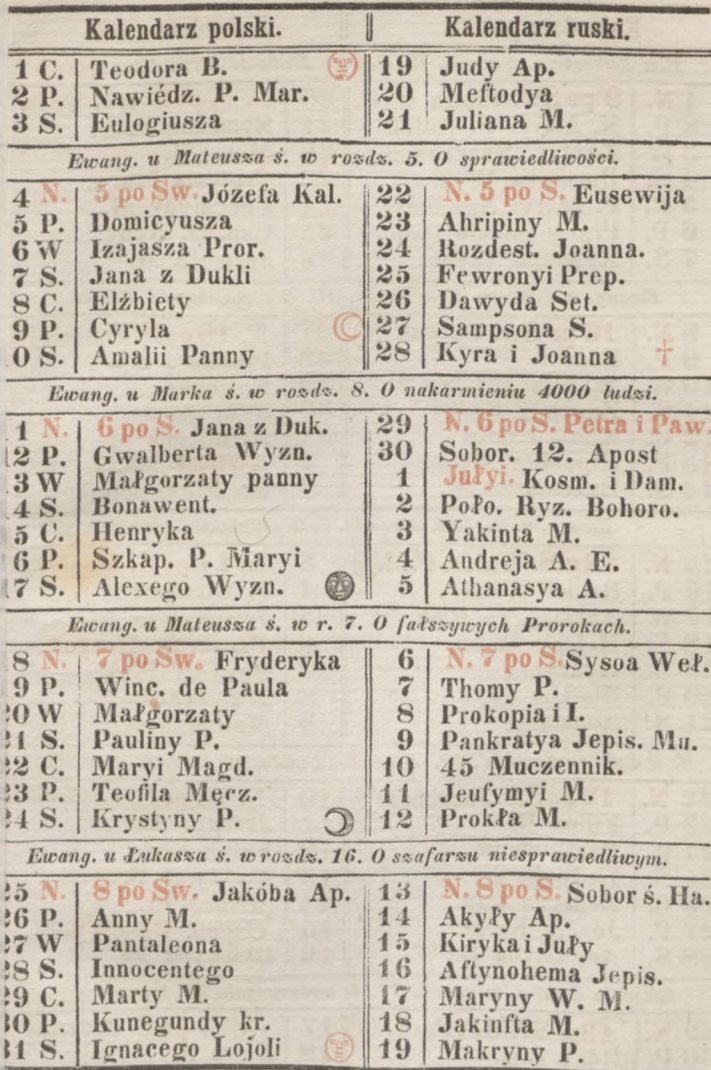 Kalendarz polski. Kalendarz ruski.
1 C. Teodora B. 19 Judy Ap.
2 P. Nawiédz. P. Mar. 20 Meftodya
3 S. Eulogiusza 21 Juliana M.
Ewang. u Mateusza ś. w rozdz. 5. O sprawiedliwości.
4 N. 5 po Sw. Józefa Kal. 22 N. 5 po S. Eusewija
5 P. Domicyusza 23 Ahripiny M.
6 W Izajasza Pror. 24 Rozdest. Joanna.
7 S. Jana z Dukli 25 Fewronyi Prep.
8 C. Elżbiety 26 Dawyda Set.
9 P. Cyryla 27 Sampsona S.
0 S. Amalii Panny 28 Kyra i Joanna †
Ewang. u Marka ś. w rozdz. 8. O nakarmieniu 4000 ludzi.
1 N. 6 po S. Jana z Duk. 29 N. 6 po S. Petra i Paw.
12 P. Gwalberta Wyzn. 30 Sobor. 12. Apost
3 W Małgorzaty panny 1 Jułyi. Kosm. i Dam.
4 S. Bonawent. 2 Poło. Ryz. Bohoro.
5 C. Henryka 3 Yakinta M.
6 P. Szkap. P. Maryi 4 Andreja A. E.
17 S. Alexego Wyzn. 5 Athanasya A.
Ewang. u Mateusza ś. w r. 7. O fałszywych Prorokach.
8 N. 7 po Sw. Fryderyka 6 N. 7 po S. Sysoa Weł.
9 P. Winc. de Paula 7 Thomy P.
20 W Małgorzaty 8 Prokopia i I.
21 S. Pauliny P. 9 Pankratya Jepis. Mu.
22 C. Maryi Magd. 10 45 Muczennik.
23 P. Teofila Męcz. 11 Jeufymyi M.
24 S. Krystyny P. 12 Prokła M.
Ewang. u Łukasza ś. w rozdz. 16. O szafarzu niesprawiedliwym.
25 N. 8 po Sw. Jakóba Ap. 13 N. 8 po S. Sobor ś. Ha.
26 P. Anny M. 14 Akyły Ap.
27 W Pantaleona 15 Kiryka i Juły
28 S. Innocentego 16 Aftynohema Jepis.
29 C. Marty M. 17 Maryny W. M.
30 P. Kunegundy kr. 18 Jakinfta M.
31 S. Ignacego Lojoli 19 Makryny P.